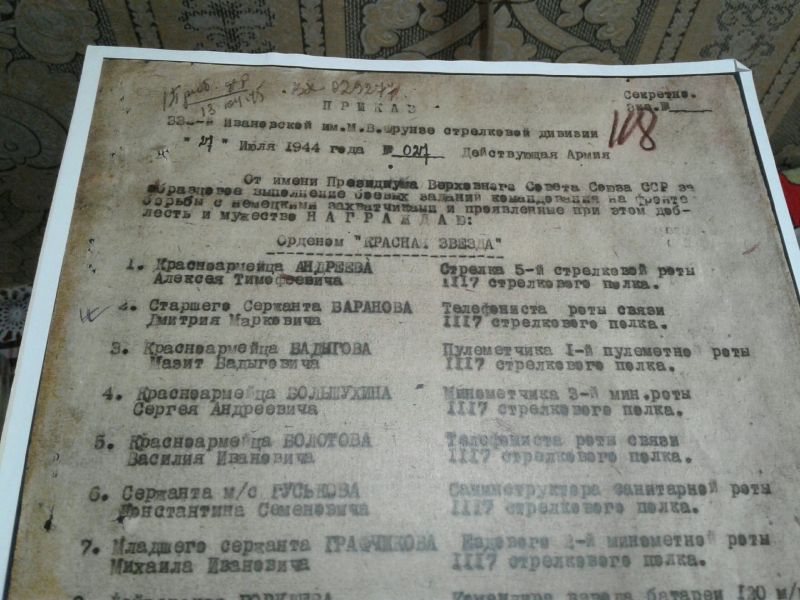 Секретно.
Экз.№
108
ПРИКАЗ
Ивановской им.М.В.Фрунзе стрелковой дивизии
"27" Июля 1944 года № 027 Действующая Армия
От имени Президиума Верховного Совета Союза ССР за
образцовое выполнение боевых заданий командования на фронте
борьбы с немецкими захватчиками и проявленные при этом доб-
лесть и мужество НАГРАЖДАЮ:
Орденом "КРАСНАЯ ЗВЕЗДА"
1. Красноармейца АНДРЕЕВА Стрелка 5-й стрелковой роты
Алексея Тимофеевича 1117 стрелкового полка.
2. Старшего Сержанта БАРАНОВА Телефониста роты связи
Дмитрия Марковича 1117 стрелкового полка.
3. Красноармейца БАДЫГОВА Пулеметчика 1-й пулеметной роты
Мазит Бадыговича 1117 стрелкового полка.
4. Красноармейца БОЛЬШУХИНА Минометчика 3-й мин.роты
Сергея Андреевича 1117 стрелкового полка.
5. Красноармейца БОЛОТОВА Телефониста роты связи
Василия Ивановича 1117 стрелкового полка.
6. Сержанта м/с ГУСЬКОВА Санинструктора санитарной роты
Константина Семеновича 1117 стрелкового полка.
7. Младшего сержанта ГРАФЧИКОВА Ездового 2-й минометной роты
Михаила Ивановича 1117 стрелкового полка.
Командира взвода батареи 120 м/м